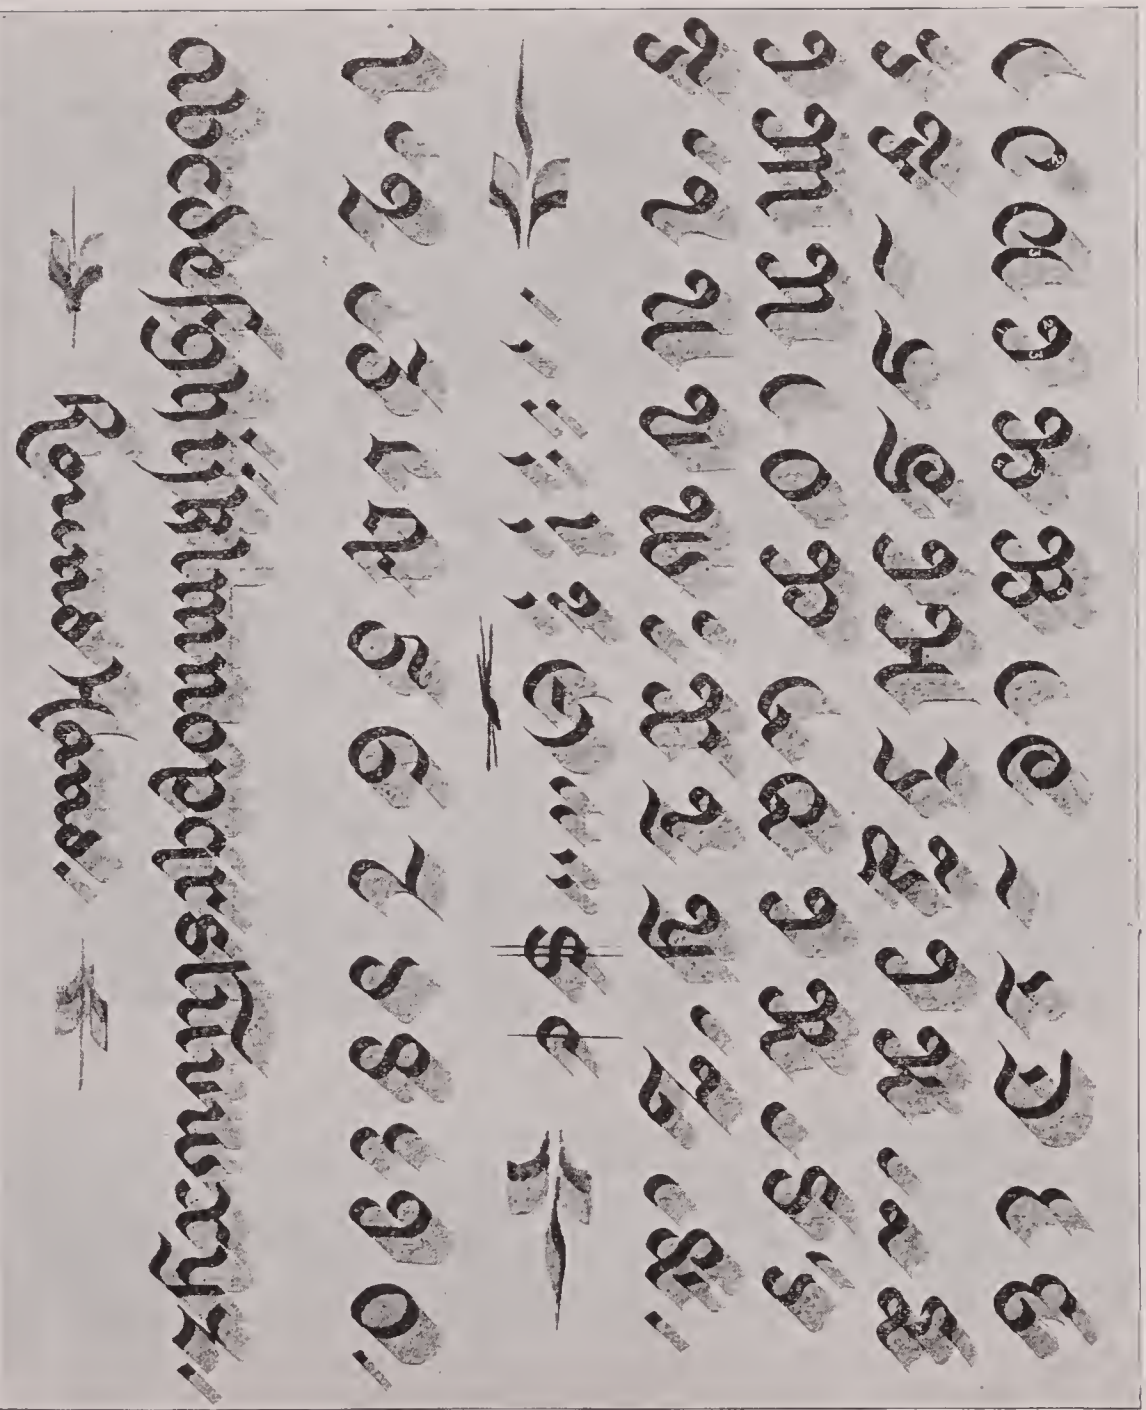 A B C D E
F G H I J K L
M N O P Q R S
T U V W X Y Z &.
$ ¢
1 2 3 4 5 6 7 8 9 0.
abcdefghijklmnopqrstuvwxyz.
Round Hand.